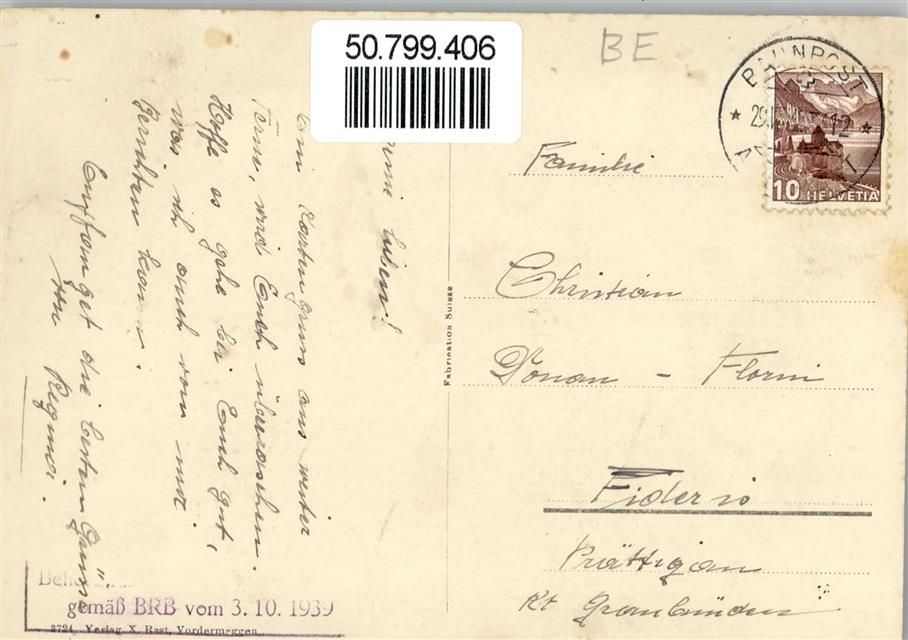 50.799.406
BE
BAHNPOST
10 HELVETIA
Familie
Christian
Donau - Florin
Fideris
Prättigau
Kt Graubünden
Fabrication Suisse
lieben!
Kartengruss aus weiter
Ferne, wird Euch überraschen.
Hoffe es gehe bei Euch gut,
was ich auch von mir
berichten kann.
Empfanget die besten Grüsse
gemäß BRB vom 3. 10. 1939
3724 Verlag X. Rast, Vordermeggen.